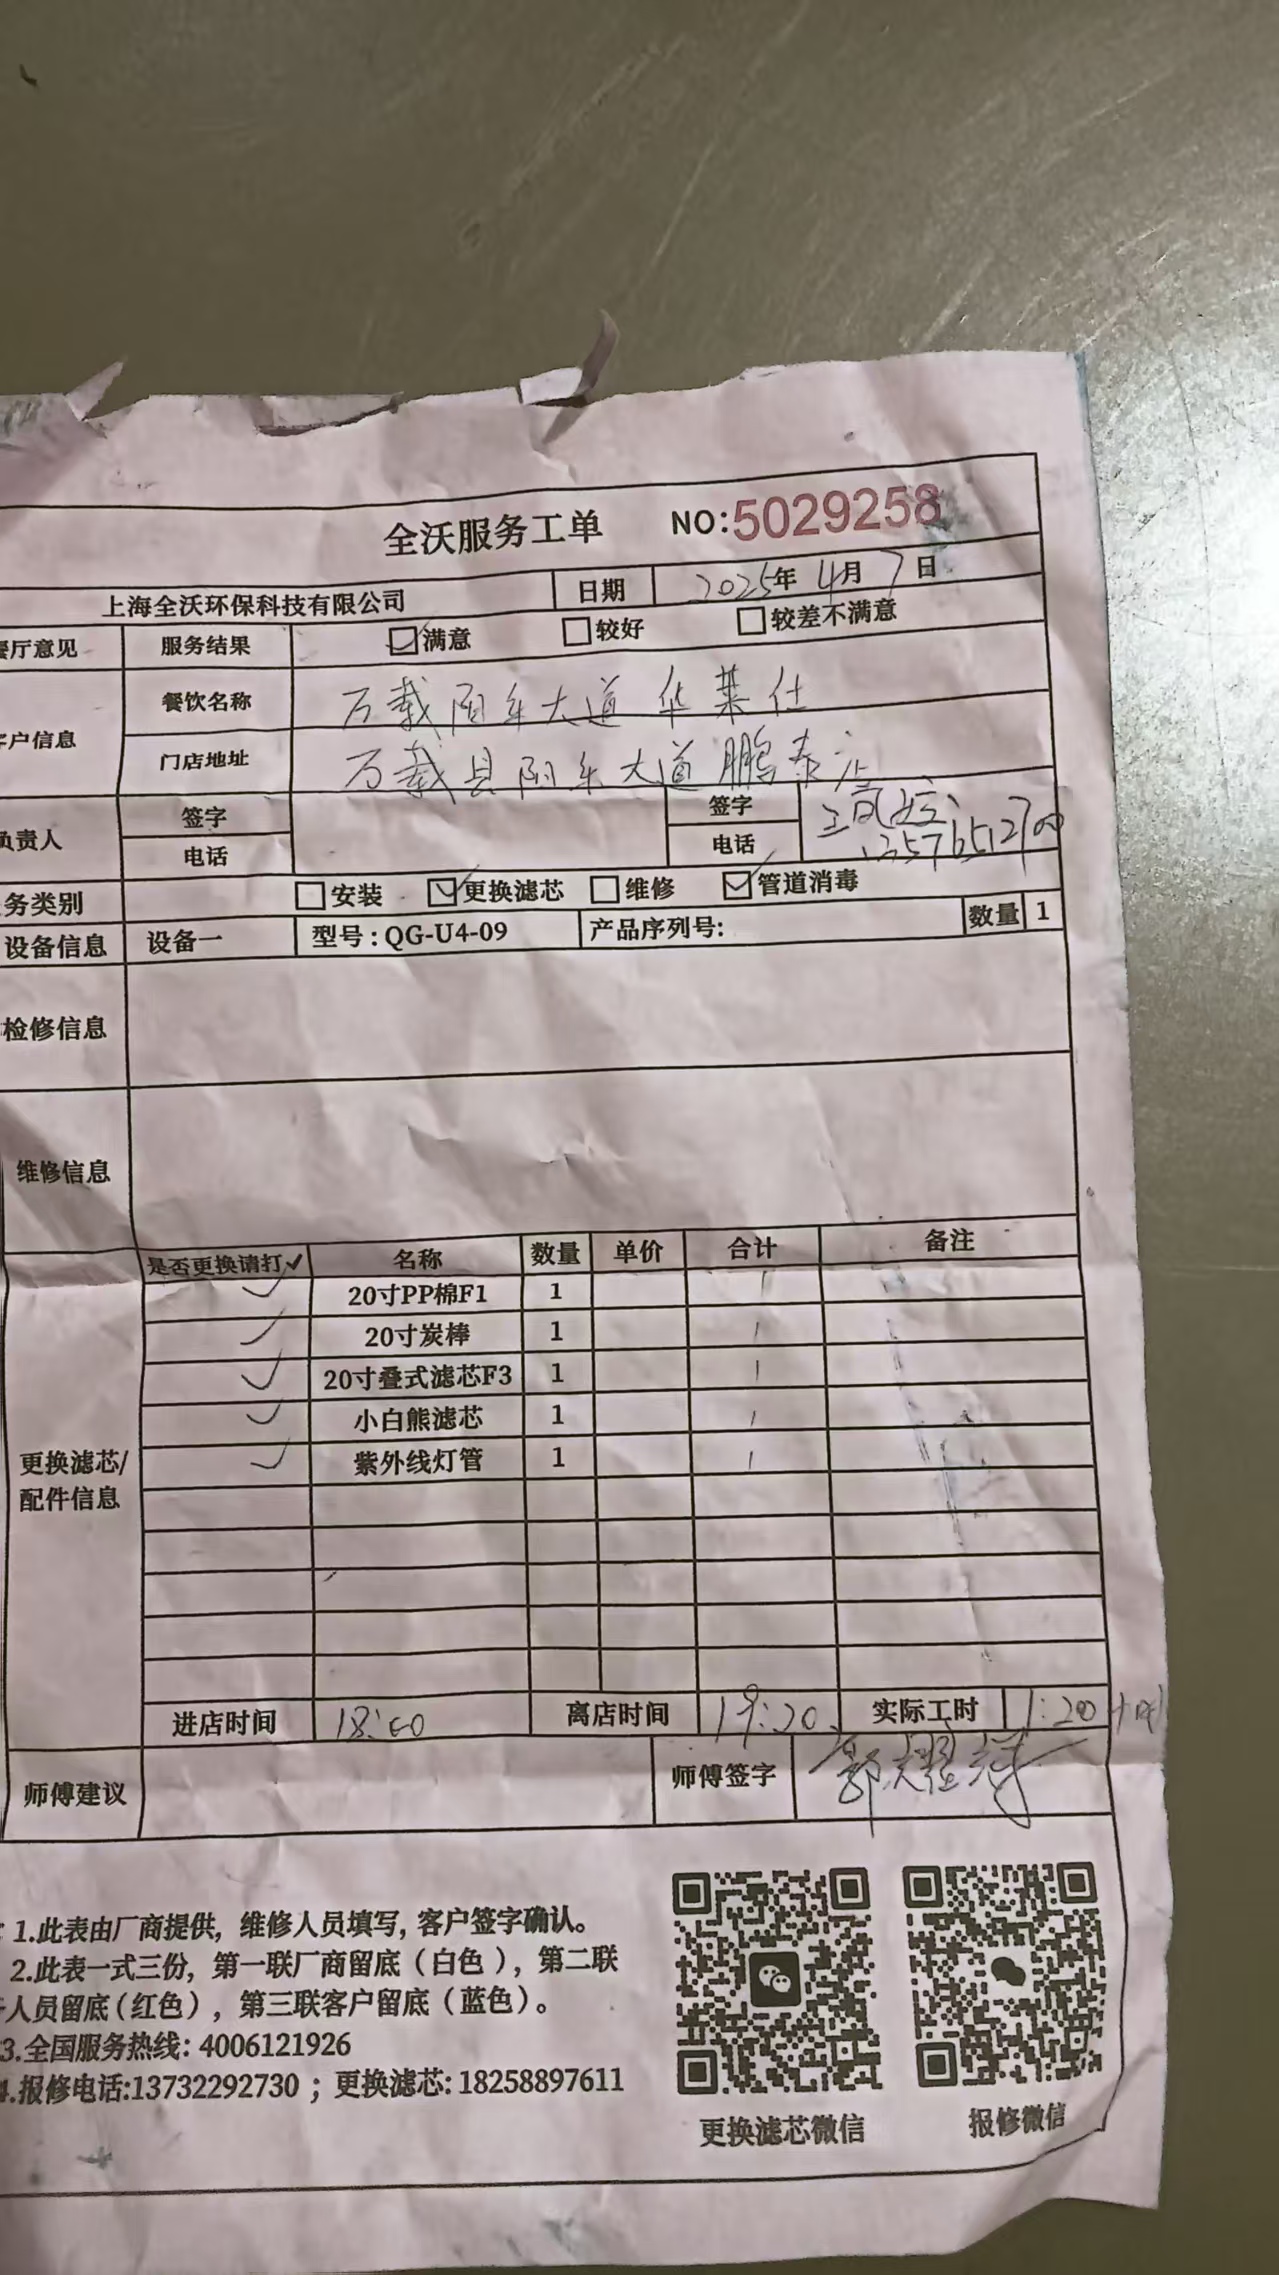 全沃服务工单 NO:5029258
上海全沃环保科技有限公司 日期 2025年4月7日
餐厅意见 服务结果 满意 较好 较差不满意
客户信息 餐饮名称 万载阳车大道华莱仕
门店地址 万载县阳车大道鹏泰
负责人 签字 签字
电话 电话 13576512700
务类别 安装 更换滤芯 维修 管道消毒
设备信息 设备一 型号:QG-U4-09 产品序列号: 数量 1
检修信息
维修信息
是否更换请打✓ 名称 数量 单价 合计 备注
✓ 20寸PP棉F1 1 1
✓ 20寸炭棒 1 1
✓ 20寸叠式滤芯F3 1 1
✓ 小白熊滤芯 1 1
✓ 紫外线灯管 1 1
更换滤芯/
配件信息
进店时间 18:00 离店时间 19:20 实际工时 1:20
师傅建议 师傅签字
1.此表由厂商提供, 维修人员填写, 客户签字确认。
2.此表一式三份, 第一联厂商留底（白色）, 第二联
人员留底(红色）, 第三联客户留底（蓝色）。
3.全国服务热线: 4006121926
4.报修电话:13732292730 ; 更换滤芯: 18258897611
更换滤芯微信 报修微信